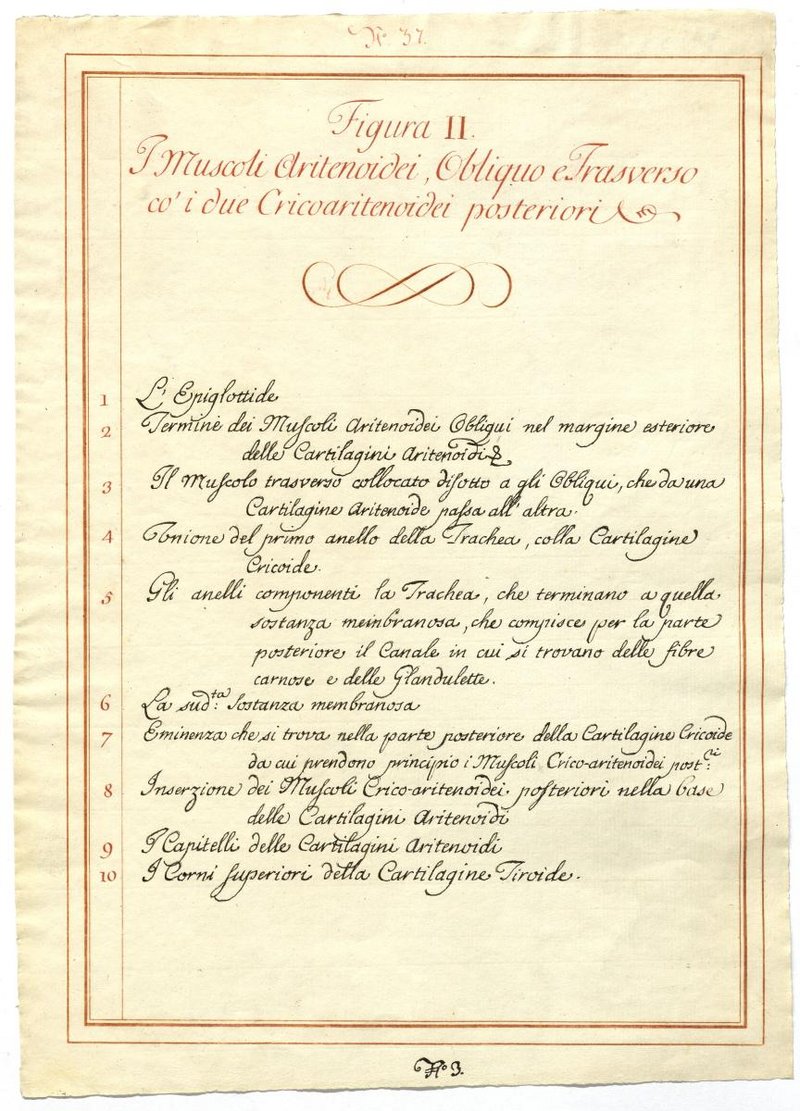 Nº 37.
Figura II.
I Muscoli Aritenoidei, Obliquo e Trasverso
co' i due Cricoaritenoidei posteriori
1 L' Epiglottide
2 Termine dei Muscoli Aritenoidei Obliqui nel margine esteriore
delle Cartilagini Aritenoidi
3 Il Muscolo trasverso collocato disotto a gli Obliqui, che da una
Cartilagine Aritenoide passa all' altra.
4 Unione del primo anello della Trachea, colla Cartilagine
Cricoide.
5 Gli anelli componenti la Trachea, che terminano a quella
sostanza meinbranosa, che compisce per la parte
posteriore il Canale in cui si trovano delle fibre
carnose e delle Glandulette.
6 La sud:ta Sostanza membranosa
7 Eminenza che si trova nella parte posteriore della Cartilagine Cricoide
da cui prendono principio i Muscoli Crico-aritenoidei post:ri
8 Inserzione dei Muscoli Crico-aritenoidei posteriori nella base
delle Cartilagini Aritenoidi
9 I Capitelli delle Cartilagini Aritenoidi
10 I Corni superiori della Cartilagine Tiroide.
Nº 3.